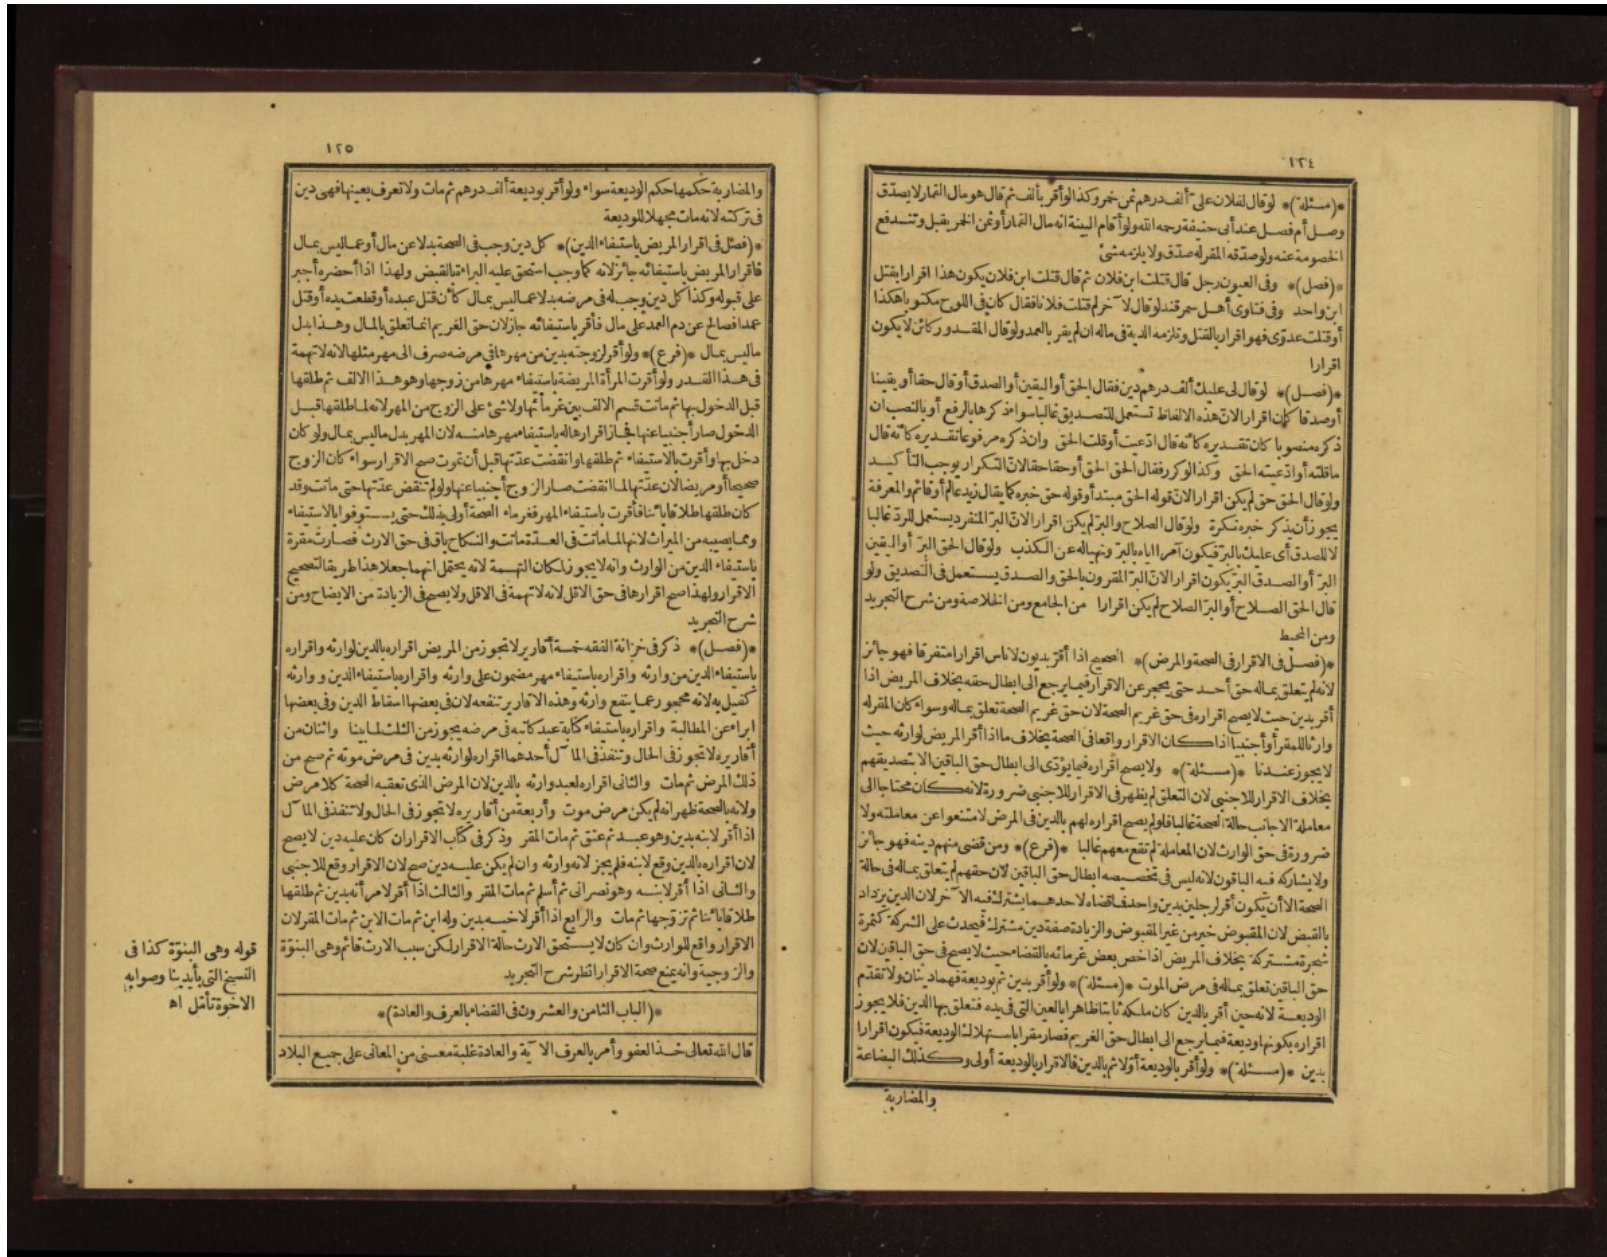 ١٢٤
*(مسئلة)* لو قال لفلان علىّ ألف درهم ثمن خمر وكذا لو أقر بألف ثم قال هو مال القمار لا يصدّق
وصل أم فصل عند أبى حنيفة رحمه الله ولو أقام البينة انه مال القمار أو ثمن الخمر يقبل وتندفع
الخصومة عنه ولو صدّقه المقر له صدّق ولا يلزمه شئ
*(فصل)* وفى العيون رجل قال قتلت ابن فلان ثم قال قتلت ابن فلان يكون هذا اقرارا بقتل
ابن واحد وفى فتاوى أهل سمرقند لو قال لآخر لم قتلت فلانا فقال كان فى اللوح مكتوبا هكذا
أو قتلت عدوّى فهو اقرار بالقتل وتلزمه الدية فى ماله ان لم يقر بالعمد ولو قال المقدور كائن لا يكون
اقرارا
*(فصل)* لو قال لى عليك ألف درهم دين فقال الحق أو اليقين أو الصدق أو قال حقا أو يقينا
أو صدقا كان اقرارا لانّ هذه الالفاظ تستعمل للتصديق غالبا سواء ذكرها بالرفع أو بالنصب ان
ذكره منصوبا كان تقديره كأنه قال ادّعيت أو قلت الحق وان ذكره مرفوعا تقديره كأنه قال
ما قلته أو ادّعيته الحق وكذا لو كرر فقال الحق الحق أو حقا حقا لانّ التكرار يوجب التأكيد
ولو قال الحق حق لم يكن اقرارا لانّ قوله الحق مبتدأ وقوله حق خبره كما يقال زيد عالم أو قائم والمعرفة
يجوز أن يذكر خبره نكرة ولو قال الصلاح والبرّ لم يكن اقرارا لانّ البرّ المنفرد يستعمل للردّ غالبا
لا للصدق أى عليك بالبرّ فيكون آمرا اياه بالبرّ ونهيا له عن الكذب ولو قال الحق البرّ أو اليقين
البرّ أو الصدق البرّ يكون اقرارا لانّ البرّ المقرون بالحق والصدق يستعمل فى التصديق ولو
قال الحق الصلاح أو البرّ الصلاح لم يكن اقرارا من الجامع ومن الخلاصة ومن شرح التجريد
ومن المحيط
*(فصل فى الاقرار فى الصحة والمرض)* الصحيح اذا أقرّ بديون لاناس اقرارا متفرقا فهو جائز
لانه لم يتعلق بماله حق أحد حتى يحجر عن الاقرار فيما يرجع الى ابطال حقه بخلاف المريض اذا
أقر بدين حيث لا يصح اقراره فى حق غريم الصحة لان حق غريم الصحة تعلق بماله وسواء كان المقر له
وارثا للمقر أو أجنبيا اذا كان الاقرار واقعا فى الصحة بخلاف ما اذا أقر المريض لوارثه حيث
لا يجوز عندنا *(مسئلة)* ولا يصح اقراره فيما يؤدّى الى ابطال حق الباقين الا بتصديقهم
بخلاف الاقرار للاجنبى لان التعلق لم يظهر فى الاقرار للاجنبى ضرورة لانه كان محتاجا الى
معاملة الاجانب حالة الصحة غالبا فلو لم يصح اقراره لهم بالدين فى المرض لامتنعوا عن معاملته ولا
ضرورة فى حق الوارث لان المعاملة لم تقع معهم غالبا *(فرع)* ومن قضى منهم دينه فهو جائز
ولا يشاركه فيه الباقون لانه ليس فى تخصيصه ابطال حق الباقين لان حقهم لم يتعلق بماله فى حالة
الصحة الا أن يكون أقر لرجلين بدين واحد فما قضاه لاحدهما يشترك فيه الآخر لان الدين يزداد
بالقبض لان المقبوض خير من غير المقبوض والزيادة صفة دين مشترك فيحدث على الشركة كثمرة
شجرة مشتركة بخلاف المريض اذا خص بعض غرمائه بالقضاء حيث لا يصح فى حق الباقين لان
حق الباقين تعلق بماله فى مرض الموت *(مسئلة)* ولو أقر بدين ثم بوديعة فهما دينان ولا تقدّم
الوديعة لانه حين أقر بالدين كان ملكه ثابتا ظاهرا بالعين التى فى يده فتعلق بها الدين فلا يجوز
اقراره بكونها وديعة فيما يرجع الى ابطال حق الغريم فصار مقرا باستهلاك الوديعة فيكون اقرارا
بدين *(مسئلة)* ولو أقر بالوديعة أوّلا ثم بالدين فالاقرار بالوديعة أولى وكذلك البضاعة
والمضاربة
١٢٥
والمضاربة حكمها حكم الوديعة سواء ولو أقر بوديعة ألف درهم ثم مات ولا تعرف بعينها فهى دين
فى تركته لانه مات مجهلا للوديعة
*(فصل فى اقرار المريض باستيفاء الدين)* كل دين وجب فى الصحة بدلا عن مال أو عما ليس بمال
فاقرار المريض باستيفائه جائز لانه كما وجب استحق عليه البراءة بالقبض ولهذا اذا أحضره أجبر
على قبوله وكذا كل دين وجب له فى مرضه بدلا عما ليس بمال كأن قتل عبده أو قطعت يده أو قتل
عمدا فصالح عن دم العمد على مال فأقر باستيفائه جاز لان حق الغريم انما تعلق بالمال وهذا بدل
ما ليس بمال *(فرع)* ولو أقر لزوجته بدين من مهرها فى مرضه صرف الى مهر مثلها لانه لا تهمة
فى هذا القدر ولو أقرت المرأة المريضة باستيفاء مهرها من زوجها وهو هذا الالف ثم طلقها
قبل الدخول بها ثم ماتت قسم الالف بين غرمائها ولا شئ على الزوج من المهر لانه لما طلقها قبل
الدخول صار أجنبيا عنها فجاز اقرارها له باستيفاء مهرها منه لان المهر بدل ما ليس بمال ولو كان
دخل بها وأقرت بالاستيفاء ثم طلقها وانقضت عدّتها قبل أن تموت صح الاقرار سواء كان الزوج
صحيحا أو مريضا لان عدّتها لما انقضت صار الزوج أجنبيا عنها ولو لم تنقض عدّتها حتى ماتت وقد
كان طلقها طلاقا بائنا فأقرت باستيفاء المهر فغرماء الصحة أولى بذلك حتى يستوفوا بالاستيفاء
ومما يصيبه من الميراث لانها لما ماتت فى العدّة ماتت والنكاح باق فى حق الارث فصارت مقرة
باستيفاء الدين من الوارث وانه لا يجوز لمكان التهمة لانه يحتمل انهما جعلا هذا طريقا لتصحيح
الاقرار ولهذا صح اقرارها فى حق الاقل لانه لا تهمة فى الاقل ولا يصح فى الزيادة من الايضاح ومن
شرح التجريد
*(فصل)* ذكر فى خزانة الفقه خمسة أقارير لا تجوز من المريض اقراره بالدين لوارثه واقراره
باستيفاء الدين من وارثه واقراره باستيفاء مهر مضمون على وارثه واقراره باستيفاء الدين ووارثه
كفيل به لانه محجور عما ينتفع وارثه وهذه الاقارير تنفعه لان فى بعضها اسقاط الدين وفى بعضها
ابراء عن المطالبة واقراره باستيفاء كتابة عبد كاتبه فى مرضه يجوز من الثلث لما بينا واثنان من
أقاريره لا تجوز فى الحال وتنفذ فى المآل أحدهما اقراره لوارثه بدين فى مرض موته ثم صح من
ذلك المرض ثم مات والثانى اقراره لعبد وارثه بالدين لان المرض الذى تعقبه الصحة كلا مرض
ولانه بالصحة ظهر انه لم يكن مرض موت وأربعة من أقاريره لا تجوز فى الحال ولا تنفذ فى المآل
اذا أقر لابنه بدين وهو عبد ثم عتق ثم مات المقر وذكر فى كتاب الاقرار ان كان عليه دين لا يصح
لان اقراره بالدين وقع لابنه فلم يجز لانه وارثه وان لم يكن عليه دين صح لان الاقرار وقع للاجنبى
والثانى اذا أقر لابنه وهو نصرانى ثم أسلم ثم مات المقر والثالث اذا أقر لامرأته بدين ثم طلقها
طلاقا بائنا ثم تزوّجها ثم مات والرابع اذا أقر لاخيه بدين وله ابن ثم مات الابن ثم مات المقر لان
الاقرار واقع للوارث وان كان لا يستحق الارث حالة الاقرار لكن سبب الارث قائم وهى البنوّة
والزوجية وانه يمنع صحة الاقرار انظر شرح التجريد
*(الباب الثامن والعشرون فى القضاء بالعرف والعادة)*
قال الله تعالى خذ العفو وأمر بالعرف الآية والعادة غلبة معنى من المعانى على جميع البلاد
قوله وهى البنوّة كذا فى
النسخ التى بأيدينا وصوابه
الاخوة تأمّل اه